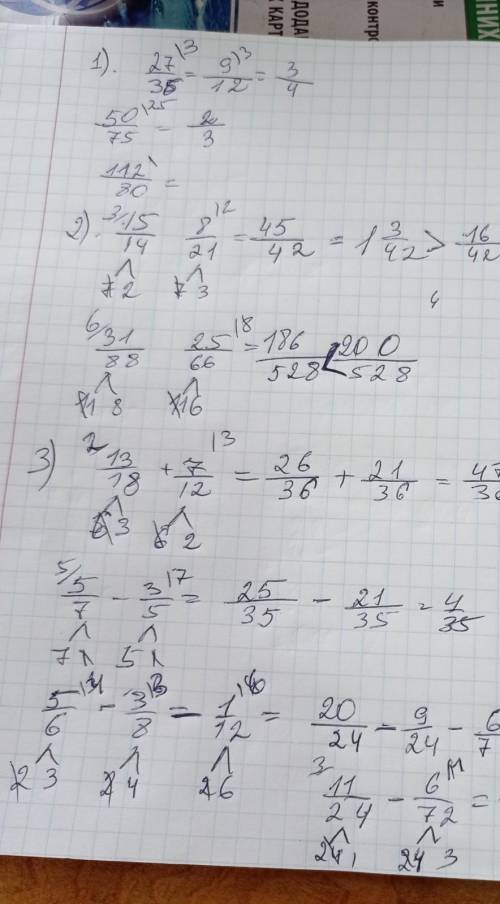 1). 27/36 |3 = 9/12 |3 = 3/4
50/75 |25 = 2/3
112/80 =
2). 3/ 15/14 8/21 |2 = 45/42 = 1 3/42 > 16/42
7 2 7 3
4
6/ 31/88 25/66 |8 = 186/528 < 200/528
11 8 11 6
3) 2/ 13/18 + 7/12 |3 = 26/36 + 21/36 = 47/36
6 3 6 2
5/ 5/7 - 3/5 |7 = 25/35 - 21/35 = 4/35
7 1 5 1
5/6 |4 - 3/8 |3 - 1/12 |6 = 20/24 - 9/24 - 6/7
2 3 2 4 2 6
3 11/24 - 6/72 |1 =
24 1 24 3